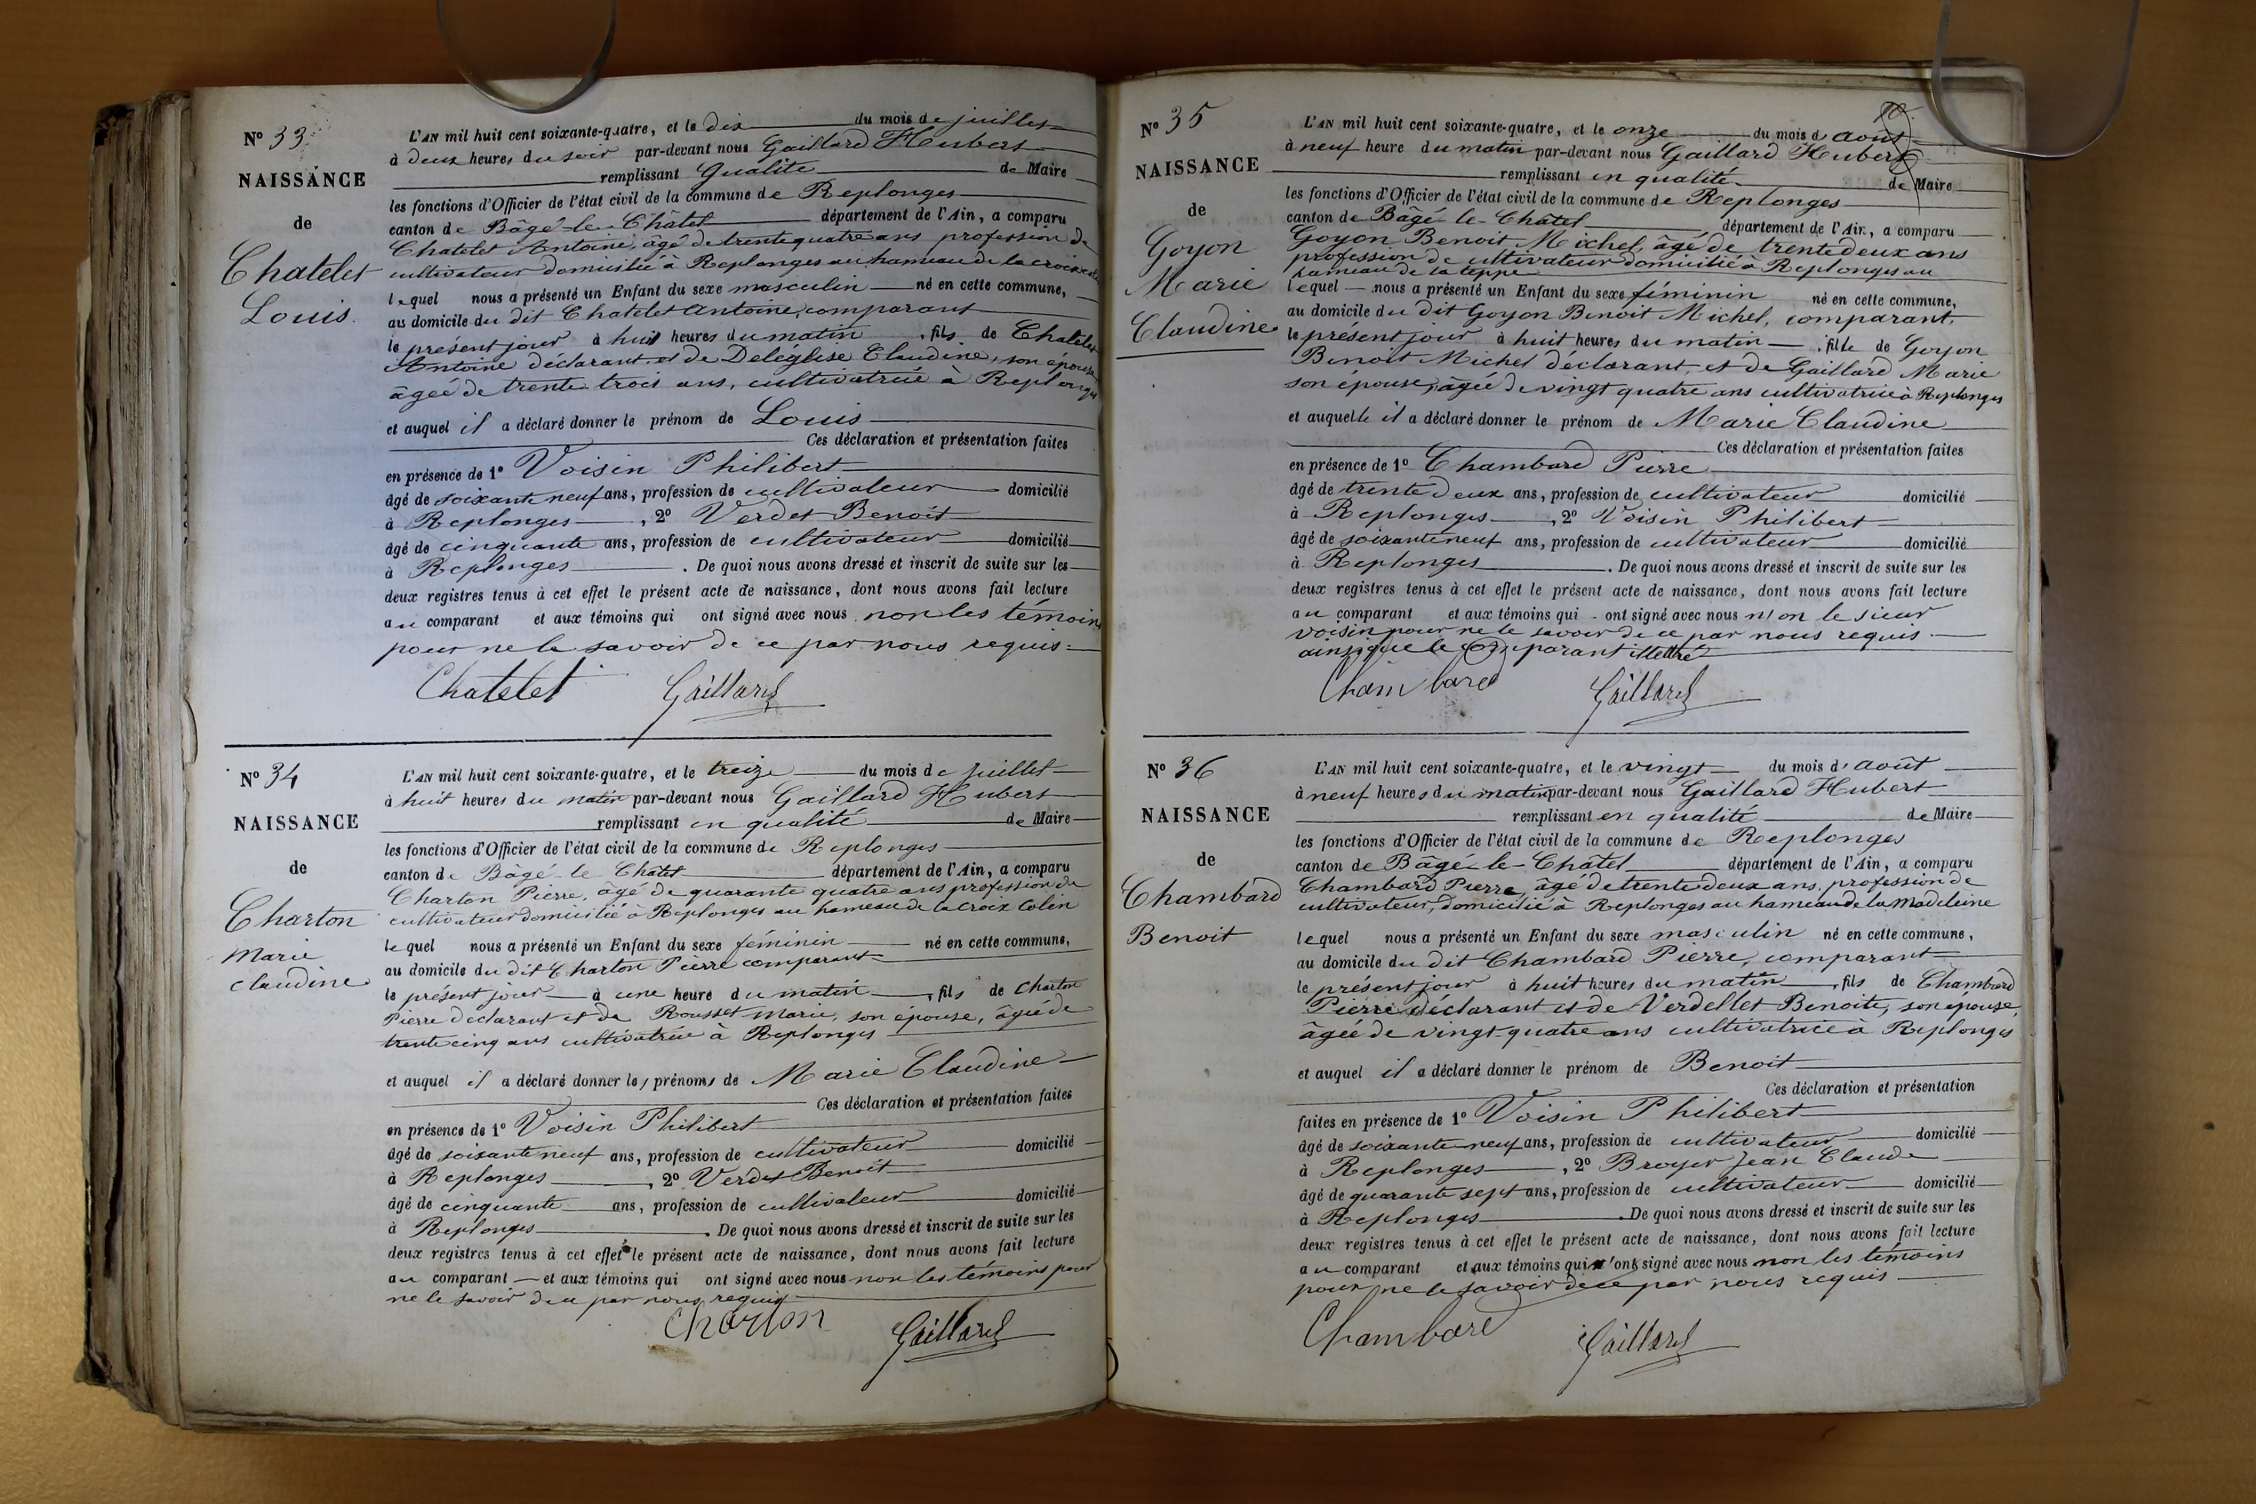 N° 33
NAISSANCE
de
Chatelet
Louis.
L'AN mil huit cent soixante-quatre, et le dix du mois de juillet
à deux heures du soir par-devant nous Gaillard Hubert
remplissant Qualité de Maire
les fonctions d'Officier de l'état civil de la commune de Replonges
canton de Bâgé-le-Châtel département de l'Ain, a comparu
Chatelet Antoine, âgé de trente quatre ans profession de
cultivateur domicilié à Replonges au hameau de la croix
lequel nous a présenté un Enfant du sexe masculin né en cette commune,
au domicile du dit Chatelet Antoine, comparant
le présent jour à huit heures du matin, fils de Chatelet
Antoine déclarant et de Deléglise Claudine, son épouse
âgée de trente trois ans, cultivatrice à Replonges
et auquel il a déclaré donner le prénom de Louis
Ces déclaration et présentation faites
en présence de 1° Voisin Philibert
âgé de soixante neuf ans, profession de cultivateur domicilié
à Replonges, 2° Verdet Benoit
âgé de cinquante ans, profession de cultivateur domicilié
à Replonges. De quoi nous avons dressé et inscrit de suite sur les
deux registres tenus à cet effet le présent acte de naissance, dont nous avons fait lecture
au comparant et aux témoins qui ont signé avec nous non les témoins
pour ne le savoir de ce par nous requis
Chatelet Gaillard
N° 34
NAISSANCE
de
Charton
Marie
Claudine
L'AN mil huit cent soixante-quatre, et le treize du mois de Juillet
à huit heures du matin par-devant nous Gaillard Hubert
remplissant en qualité de Maire
les fonctions d'Officier de l'état civil de la commune de Replonges
canton de Bâgé-le Châtel département de l'Ain, a comparu
Charton Pierre, âgé de quarante quatre ans profession de
cultivateur domicilié à Replonges au hameau de la Croix Colin
lequel nous a présenté un Enfant du sexe féminin né en cette commune,
au domicile du dit Charton Pierre comparant
le présent jour à une heure du matin, fils de Charton
Pierre déclarant et de Rousset Marie, son épouse, âgée de
trente cinq ans cultivatrice à Replonges
et auquel il a déclaré donner les prénoms de Marie Claudine
Ces déclaration et présentation faites
en présence de 1° Voisin Philibert
âgé de soixante neuf ans, profession de cultivateur domicilié
à Replonges, 2° Verdet Benoit
âgé de cinquante ans, profession de cultivateur domicilié
à Replonges. De quoi nous avons dressé et inscrit de suite sur les
deux registres tenus à cet effet le présent acte de naissance, dont nous avons fait lecture
au comparant et aux témoins qui ont signé avec nous non les témoins pour
ne le savoir de ce par nous requis
Charton Gaillard
N° 35
NAISSANCE
de
Goyon
Marie
Claudine
L'AN mil huit cent soixante-quatre, et le onze du mois d'août
à neuf heure du matin par-devant nous Gaillard Hubert
remplissant en qualité de Maire
les fonctions d'Officier de l'état civil de la commune de Replonges
canton de Bâgé-le-Châtel département de l'Ain, a comparu
Goyon Benoit Michel, âgé de trente deux ans
profession de cultivateur domicilié à Replonges au
hameau de la teppe
lequel nous a présenté un Enfant du sexe féminin né en cette commune,
au domicile du dit Goyon Benoit Michel, comparant,
le présent jour à huit heures du matin, fille de Goyon
Benoit Michel déclarant, et de Gaillard Marie
son épouse, âgée de vingt quatre ans cultivatrice à Replonges
et auquelle il a déclaré donner le prénom de Marie Claudine
Ces déclaration et présentation faites
en présence de 1° Chambard Pierre
âgé de trente deux ans, profession de cultivateur domicilié
à Replonges, 2° Voisin Philibert
âgé de soixante neuf ans, profession de cultivateur domicilié
à Replonges. De quoi nous avons dressé et inscrit de suite sur les
deux registres tenus à cet effet le présent acte de naissance, dont nous avons fait lecture
au comparant et aux témoins qui ont signé avec nous non le sieur
voisin pour ne le savoir de ce par nous requis
ainsi que le comparant illettré
Chambard Gaillard
N° 36
NAISSANCE
de
Chambard
Benoit
L'AN mil huit cent soixante-quatre, et le vingt du mois d'août
à neuf heures du matin par-devant nous Gaillard Hubert
remplissant en qualité de Maire
les fonctions d'Officier de l'état civil de la commune de Replonges
canton de Bâgé-le-Châtel département de l'Ain, a comparu
Chambard Pierre, âgé de trente deux ans, profession de
cultivateur, domicilié à Replonges au hameau de la Madeleine
lequel nous a présenté un Enfant du sexe masculin né en cette commune,
au domicile du dit Chambard Pierre, comparant
le présent jour à huit heures du matin, fils de Chambard
Pierre déclarant et de Verdellet Benoite, son épouse,
âgée de vingt-quatre ans cultivatrice à Replonges
et auquel il a déclaré donner le prénom de Benoit
Ces déclaration et présentation
faites en présence de 1° Voisin Philibert
âgé de soixante-neuf ans, profession de cultivateur domicilié
à Replonges, 2° Broyer Jean Claude
âgé de quarante sept ans, profession de cultivateur domicilié
à Replonges. De quoi nous avons dressé et inscrit de suite sur les
deux registres tenus à cet effet le présent acte de naissance, dont nous avons fait lecture
au comparant et aux témoins qui ont signé avec nous non les témoins
pour ne le savoir de ce par nous requis
Chambard Gaillard